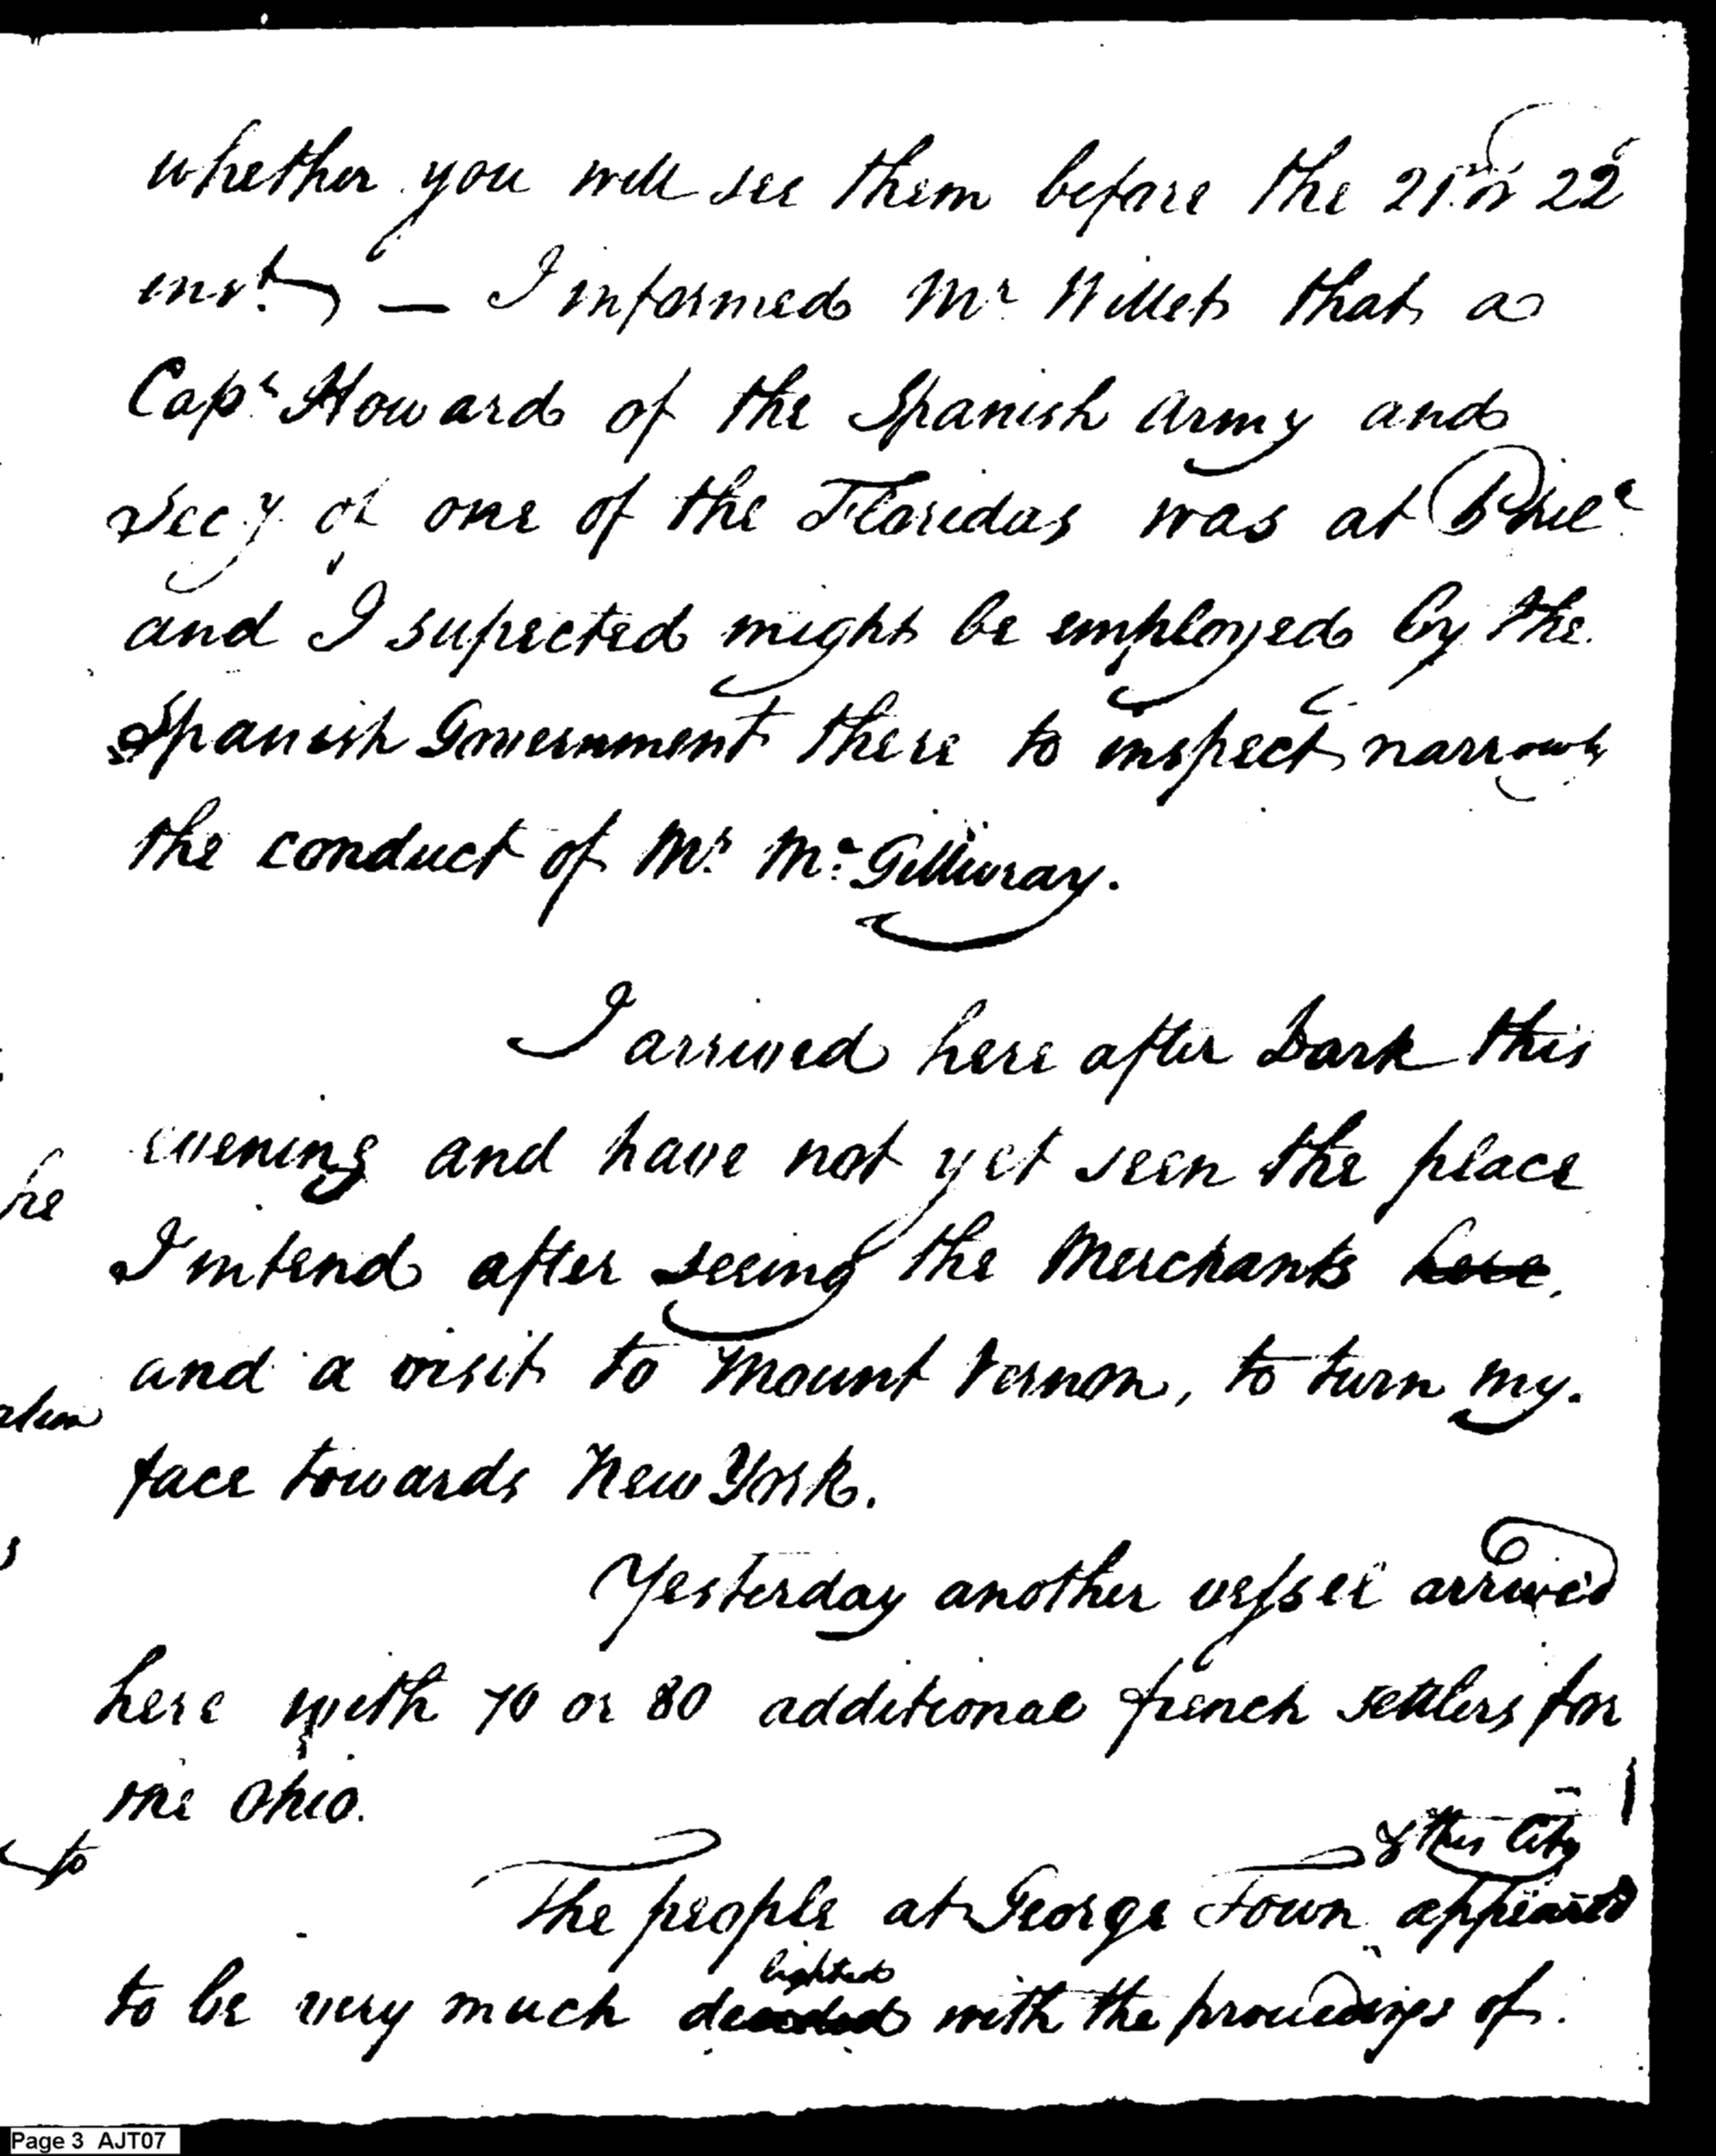 whether you will see them before the 21. or 22
inst. — I informed Mr. Willet that a
Capt. Howard of the Spanish Army and
Secy of one of the Floridas was at Phila.
and I supected might be employed by the
Spanish Government there to inspect narrowly
the conduct of Mr. Mc.Gillivray.
I arrived here after Dark this
evening and have not yet seen the place
I intend after seeing the Merchants here,
and a visit to Mount Vernon, to turn my
face towards New York.
Yesterday another vessel arrived
here with 70 or 80 additional french settlers for
the Ohio.
& this City
The people at George Town appeared
lighted
to be very much de with the proceedings of
he
to
Page 3 AJT07